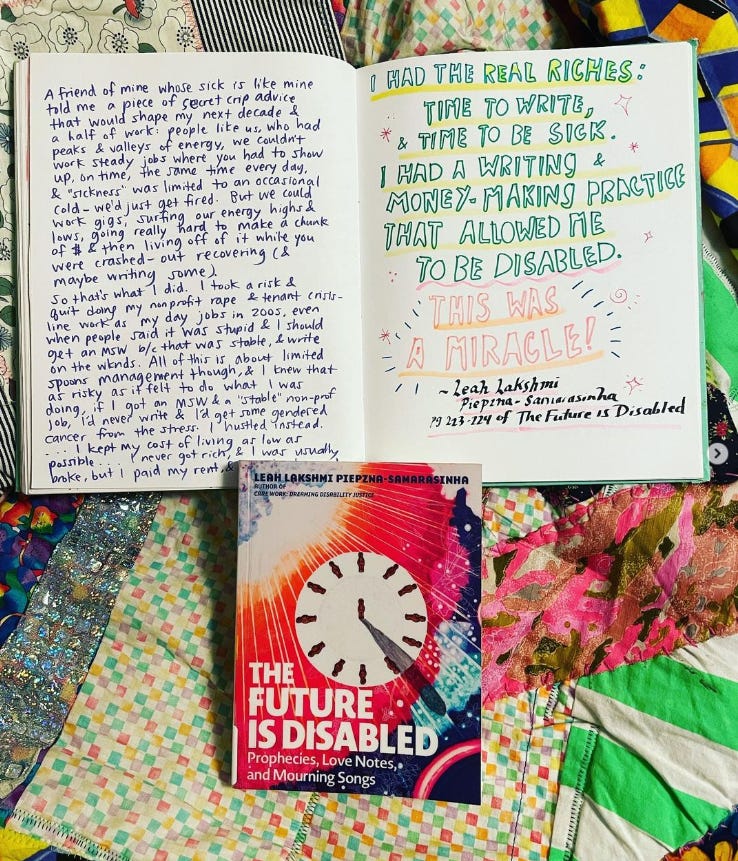 A friend of mine whose sick is like mine
told me a piece of secret crip advice
that would shape my next decade &
a half of work: people like us, who had
peaks & valleys of energy, we couldn't
work steady jobs where you had to show
up, on time, the same time every day,
& "sickness" was limited to an occasional
cold - we'd just get fired. But we could
work gigs, surfing our energy highs &
lows, going really hard to make a chunk
of $ & then living off of it while you
were crashed-out recovering (&
maybe writing some).
So that's what I did. I took a risk &
quit doing my nonprofit rape & tenant crisis-
line work as my day jobs in 2005, even
when people said it was stupid & I should
get an MSW b/c that was stable, & write
on the wknds. All of this is about limited
spoons management though, & I knew that
as risky as if felt to do what I was
doing, if I got an MSW & a "stable" non-prof
job, I'd never write & I'd get some gendered
cancer from the stress. I hustled instead.
.... I kept my cost of living as low as
possible.... I never got rich, & I was usually
broke, but I paid my rent, &
I HAD THE REAL RICHES:
TIME TO WRITE,
& TIME TO BE SICK.
I HAD A WRITING &
MONEY-MAKING PRACTICE
THAT ALLOWED ME
TO BE DISABLED.
THIS WAS
A MIRACLE!
~ Leah Lakshmi
Piepzna-Samarasinha
pg 223-224 of The Future is Disabled
LEAH LAKSHMI PIEPZNA-SAMARASINHA
AUTHOR OF
CARE WORK: DREAMING DISABILITY JUSTICE
THE
FUTURE
IS DISABLED
Prophecies, Love Notes,
and Mourning Songs